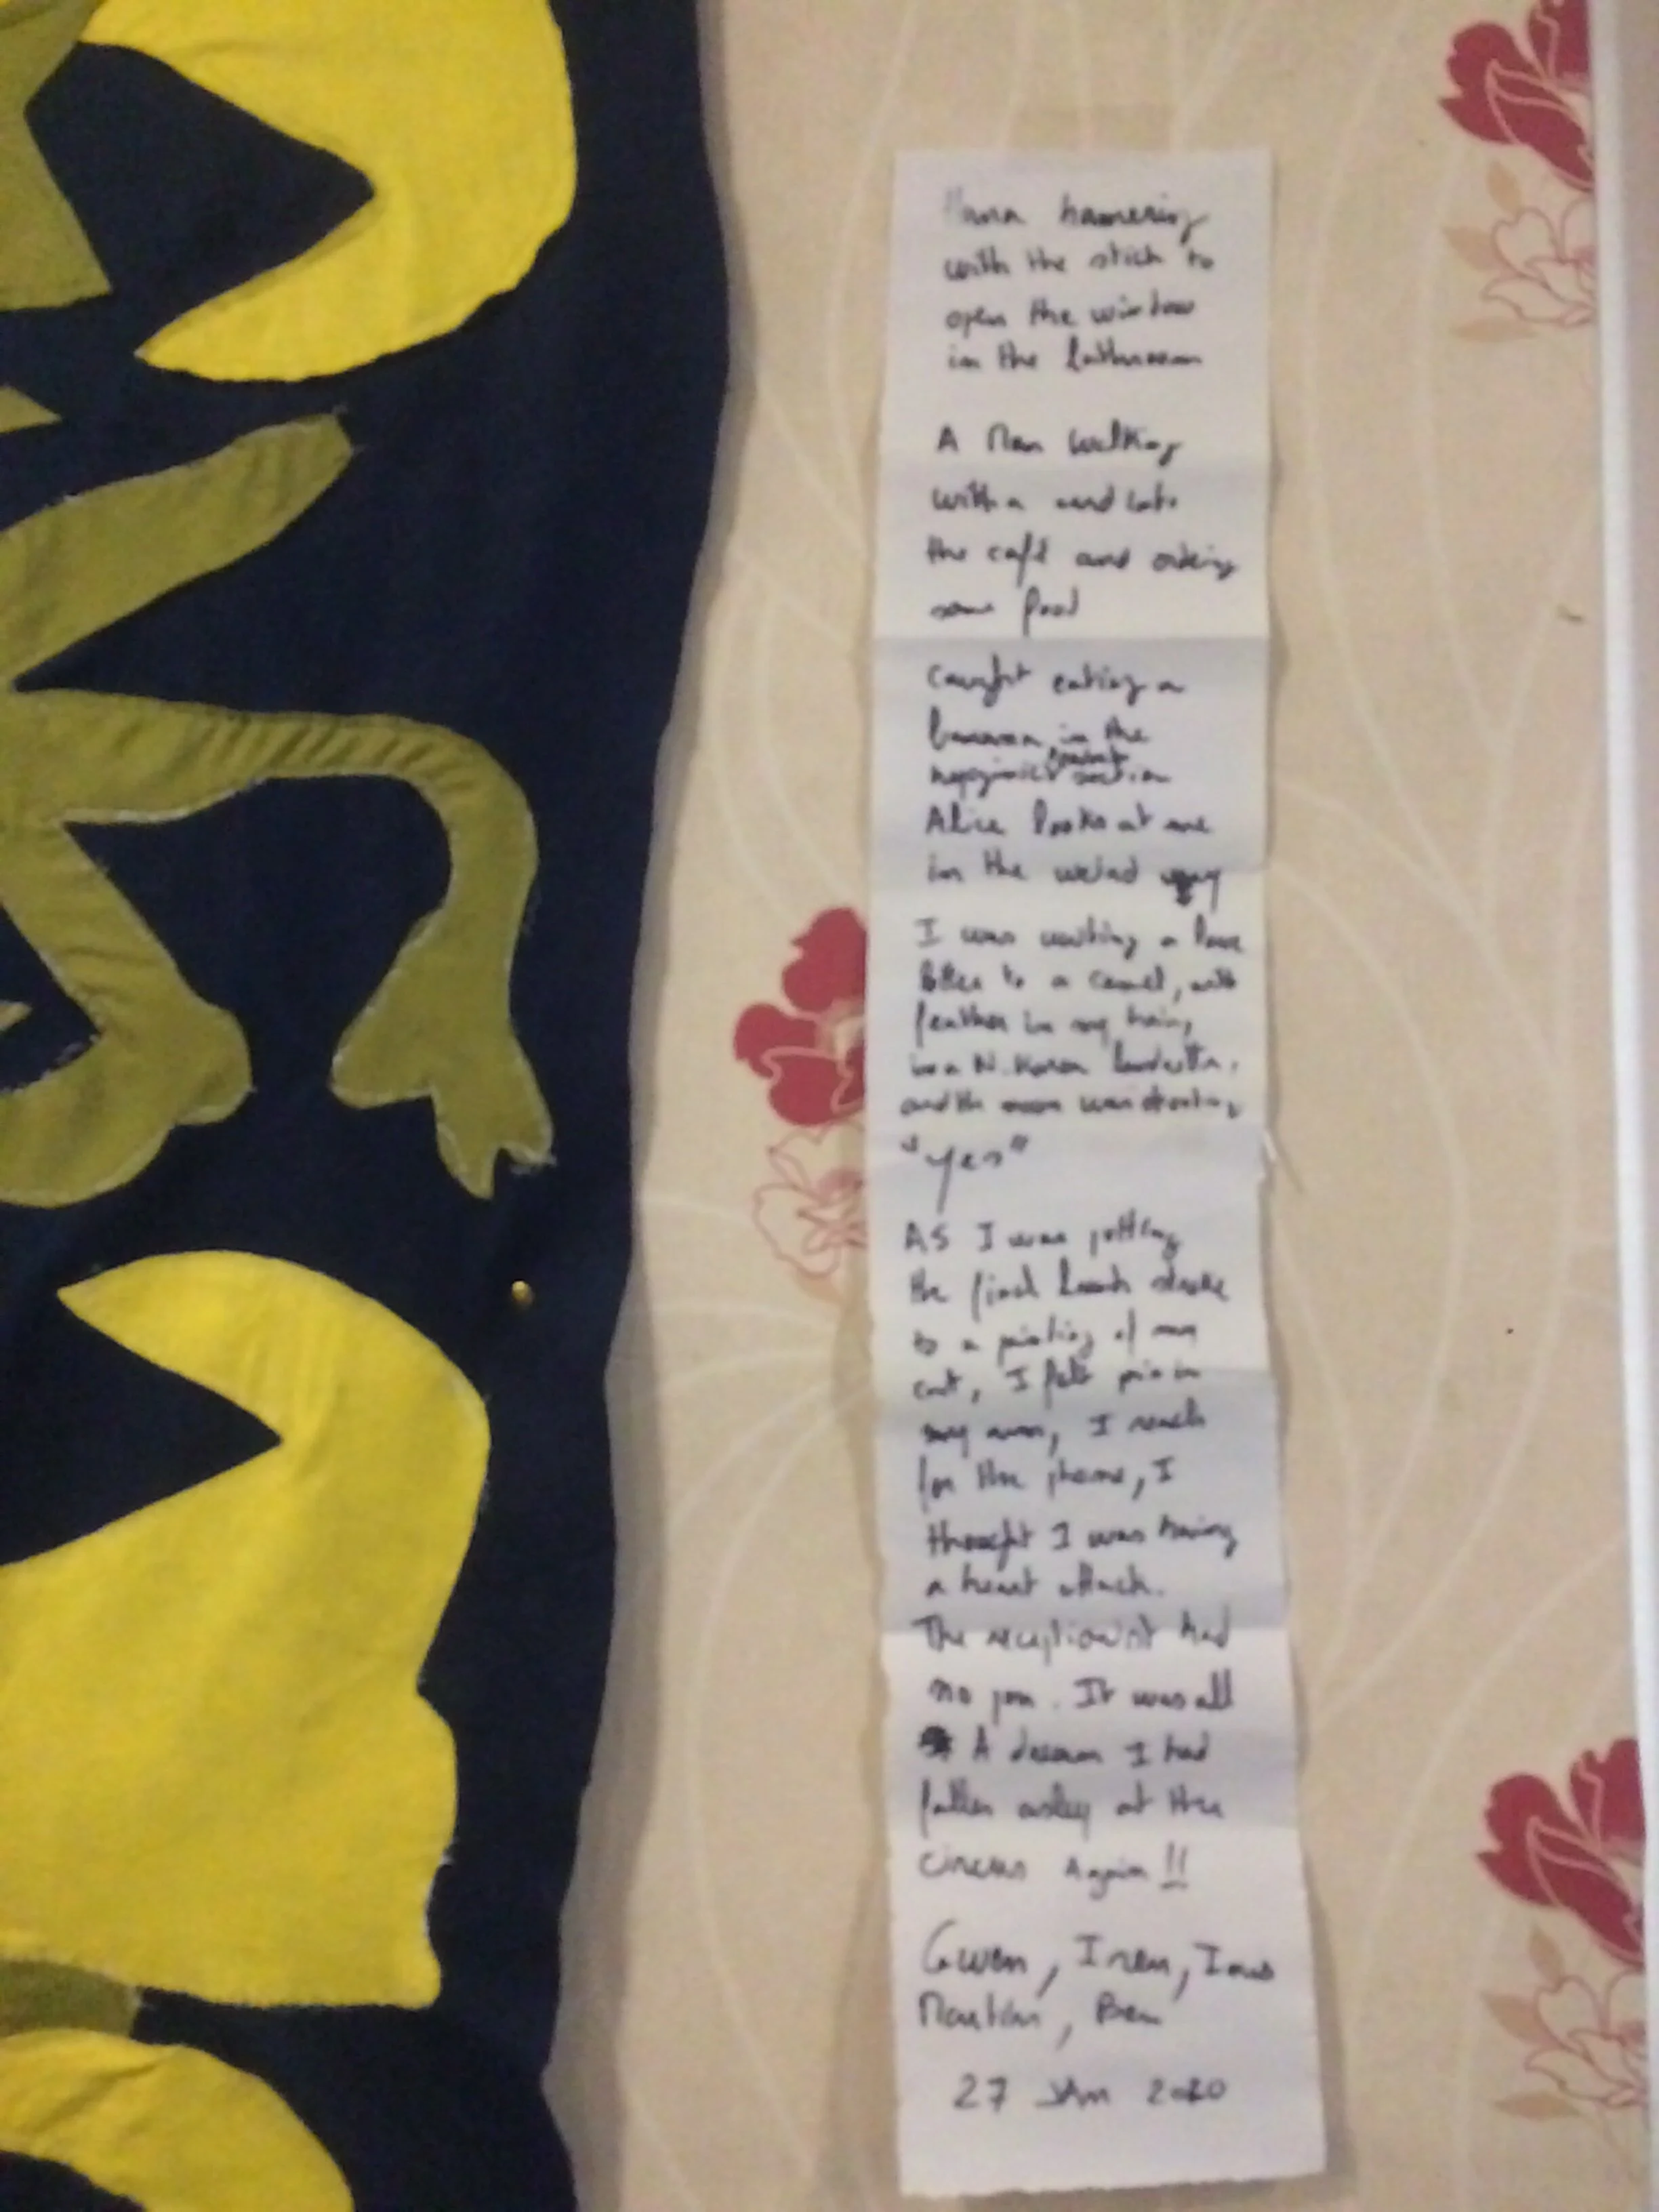 hamering
with the stick to
open the window
in the bathroom
A Man walking
with a and
the café and
some food
caught eating a
banana in the
section
Alice looks at me
in the weird way
I was writing a love
letter to a camel, with
feather in my hair,
in a N. Korea
and the moon was
"yes"
AS I was putting
the final brush stroke
to a painting of my
cat, I felt
my arm, I reach
for the phone, I
thought I was having
a heart attack.
The receptionist had
no . It was all
A dream I had
fallen asleep at the
circus Again !!
Gwen, Iren,
Martin, Ben
27 JAN 2020